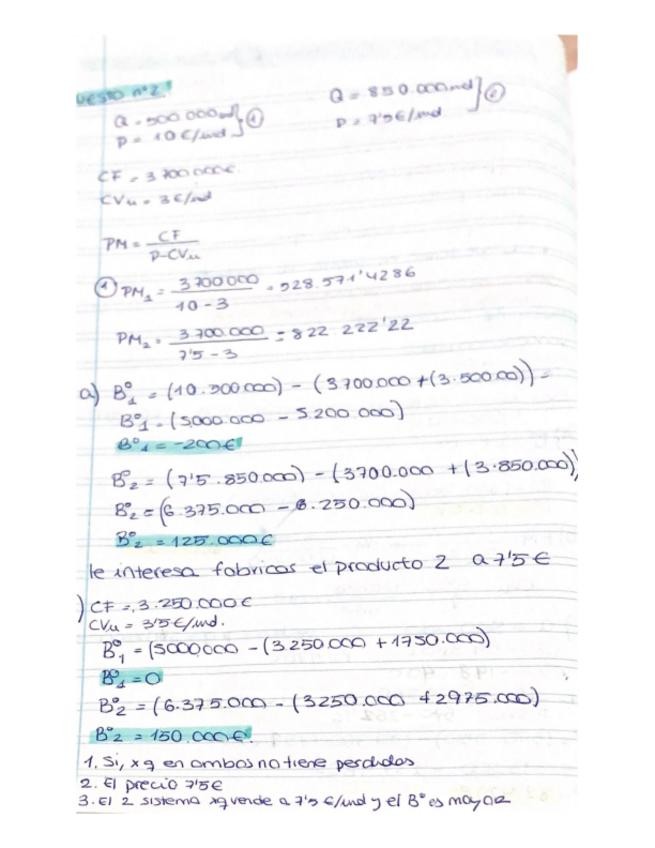 uesto nº2.
Q = 500.000 ud } ①
P = 10 €/ud
Q = 850.000 ud } ②
P = 7'5 €/ud
CF = 3.700.000 €
CVu = 3 €/ud
PM = CF / P-CVu
① PM₁ = 3700000 / 10 - 3 = 528.571'4286
PM₂ = 3.700.000 / 7'5 - 3 = 822 222'22
a) Bº₁ = (10.500.000) - (3700.000 + (3.500.00)) =
Bº₁ = (5000.000 - 5.200.000)
Bº₁ = -200 €
Bº₂ = (7'5.850.000) - (3700.000 + (3.850.000))
Bº₂ = (6.375.000 - 6.250.000)
Bº₂ = 125.000 €
le interesa fabricas el producto 2 a 7'5 €
) CF = 3.250.000 €
CVu = 3'5 €/ud.
Bº₁ = (5000000 - (3250.000 + 1750.000)
Bº₁ = 0
Bº₂ = (6.375.000 - (3250.000 + 2975.000)
Bº₂ = 150.000 €.
1. Si, xq en ambos no tiene perdidas
2. El precio 7'5 €
3. El 2 sistema xq vende a 7'5 €/ud y el Bº es mayor